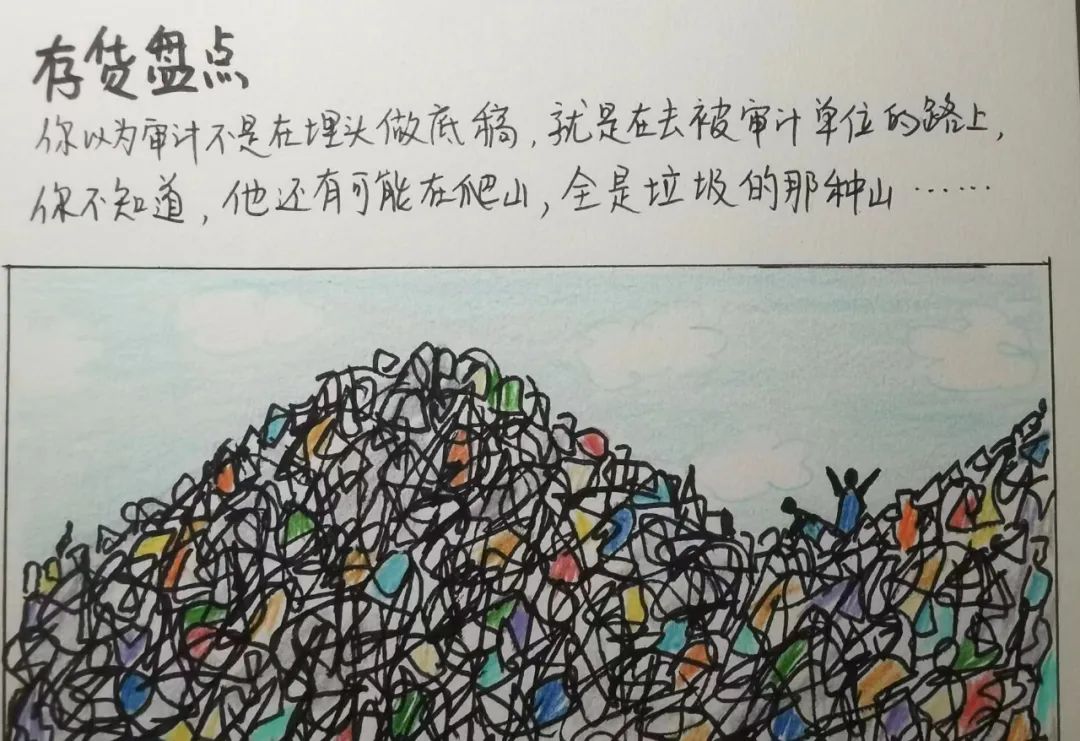 存货盘点
你以为审计不是在埋头做底稿,就是在去被审计单位的路上,
你不知道,他还有可能在爬山,全是垃圾的那种山……